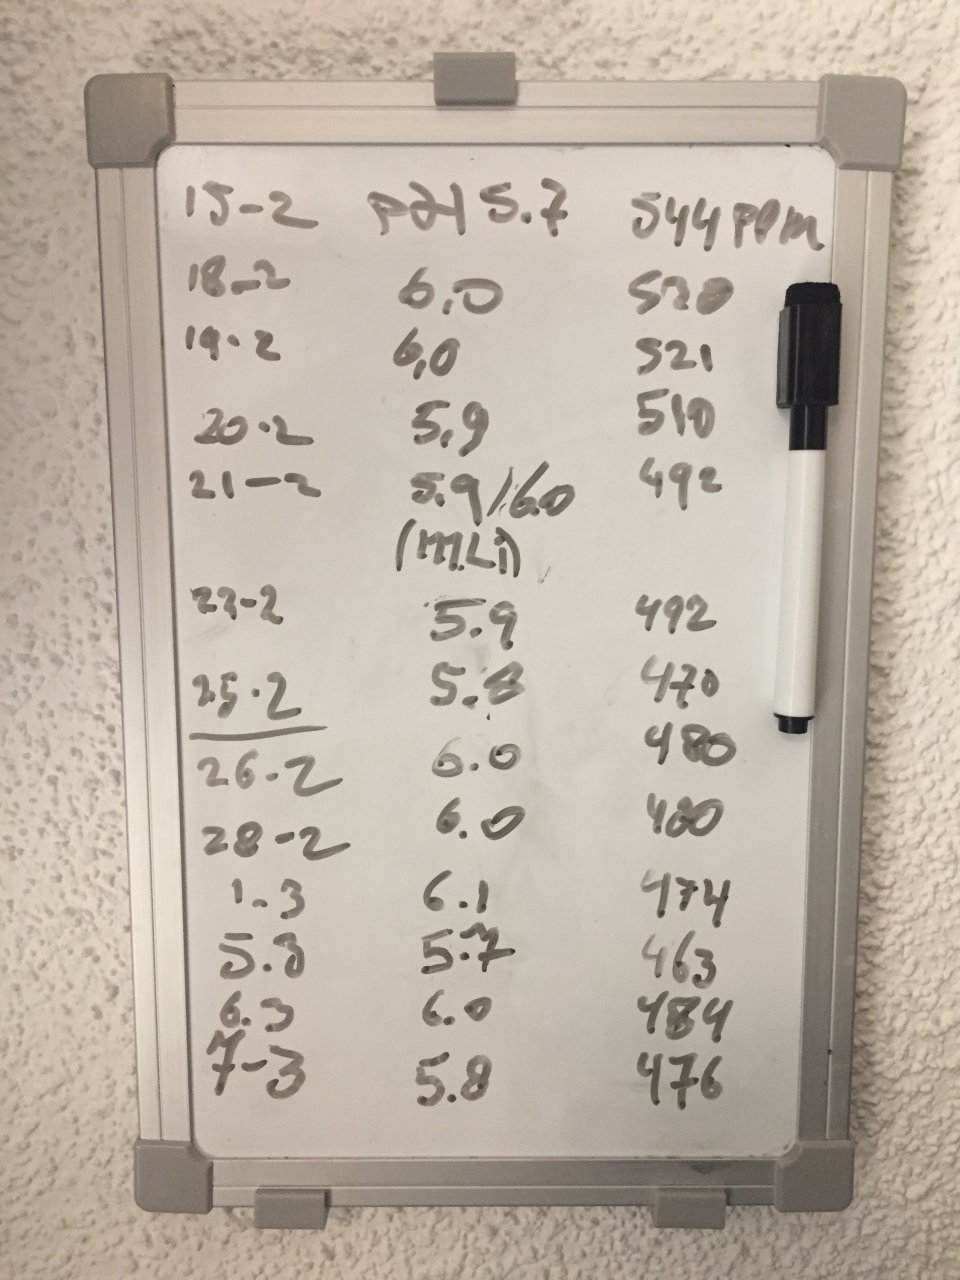 15-2 PH 5.7 544 PPM
18-2 6.0 520
19.2 6,0 521
20.2 5,9 510
21-2 5.9/6.0 492
(MLi)
23-2 5.9 492
25.2 5.8 470
26.2 6.0 480
28-2 6.0 480
1.3 6.1 474
5.3 5.7 463
6.3 6.0 484
7-3 5.8 476